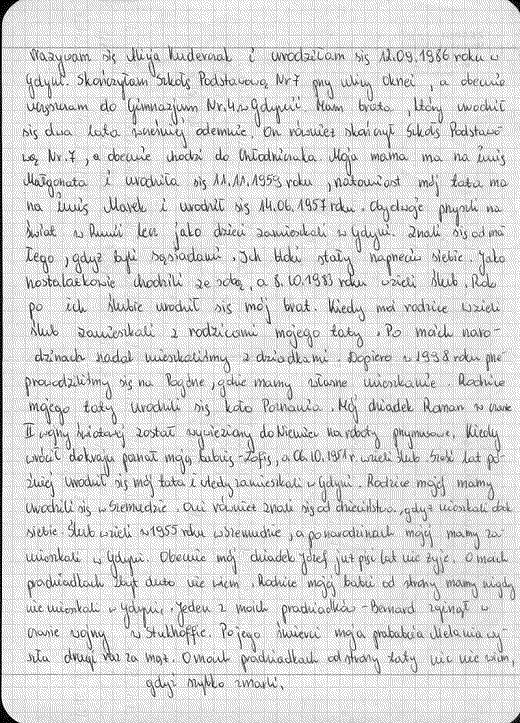 Nazywam się Alicja Kuderczak i urodziłam się 12.09.1986 roku w
Gdyni. Skończyłam Szkołę Podstawową Nr 7 przy ulicy Okrzei, a obecnie
uczęszczam do Gimnazjum Nr 4 w Gdyni. Mam brata, który urodził
się dwa lata wcześniej odemnie. On również skończył Szkołę Podstawo-
wą Nr. 7, a obecnie chodzi do Chłodniczaka. Moja mama ma na imię
Małgorzata i urodziła się 11.11.1959 roku, natomiast mój tata ma
na imię Marek i urodził się 14.06.1957 roku. Oboje przyszli na
świat w Rumii lecz jako dzieci zamieszkali w Gdyni. Znali się od ma-
łego, gdyż byli sąsiadami. Ich bloki stały naprzeciw siebie. Jako
nastolatkowie chodzili ze sobą, a 8.10.1983 roku wzięli ślub. Rok
po ich ślubie urodził się mój brat. Kiedy moi rodzice wzięli
ślub zamieszkali z rodzicami mojego taty. Po moich naro-
dzinach nadal mieszkaliśmy z dziadkami. Dopiero w 1998 roku prze-
prowadziliśmy się na Pogórze, gdzie mamy własne mieszkanie. Rodzice
mojego taty urodzili się koło Poznania. Mój dziadek Roman w czasie
II wojny światowej został wywieziony do Niemiec na roboty przymusowe. Kiedy
wrócił do kraju poznał moją babcię - Zofię, a 06.10.1951 r. wzięli ślub. Sześć lat pó-
źniej urodził się mój tata i wtedy zamieszkali w Gdyni. Rodzice mojej mamy
urodzili się w Szemudzie. Oni również znali się od dzieciństwa, gdyż mieszkali obok
siebie. Ślub wzięli w 1955 roku w Szemudzie, a po narodzinach mojej mamy za-
mieszkali w Gdyni. Obecnie mój dziadek Józef już pięć lat nie żyje. O moich
pradziadkach zbyt dużo nie wiem. Rodzice mojej babci od strony mamy nigdy
nie mieszkali w Gdyni. Jeden z moich pradziadków - Bernard zginął w
czasie wojny w Stuthoffie. Po jego śmierci moja prababcia Melania wy-
szła drugi raz za mąż. O moich pradziadkach od strony taty nic nie wiem,
gdyż szybko zmarli.